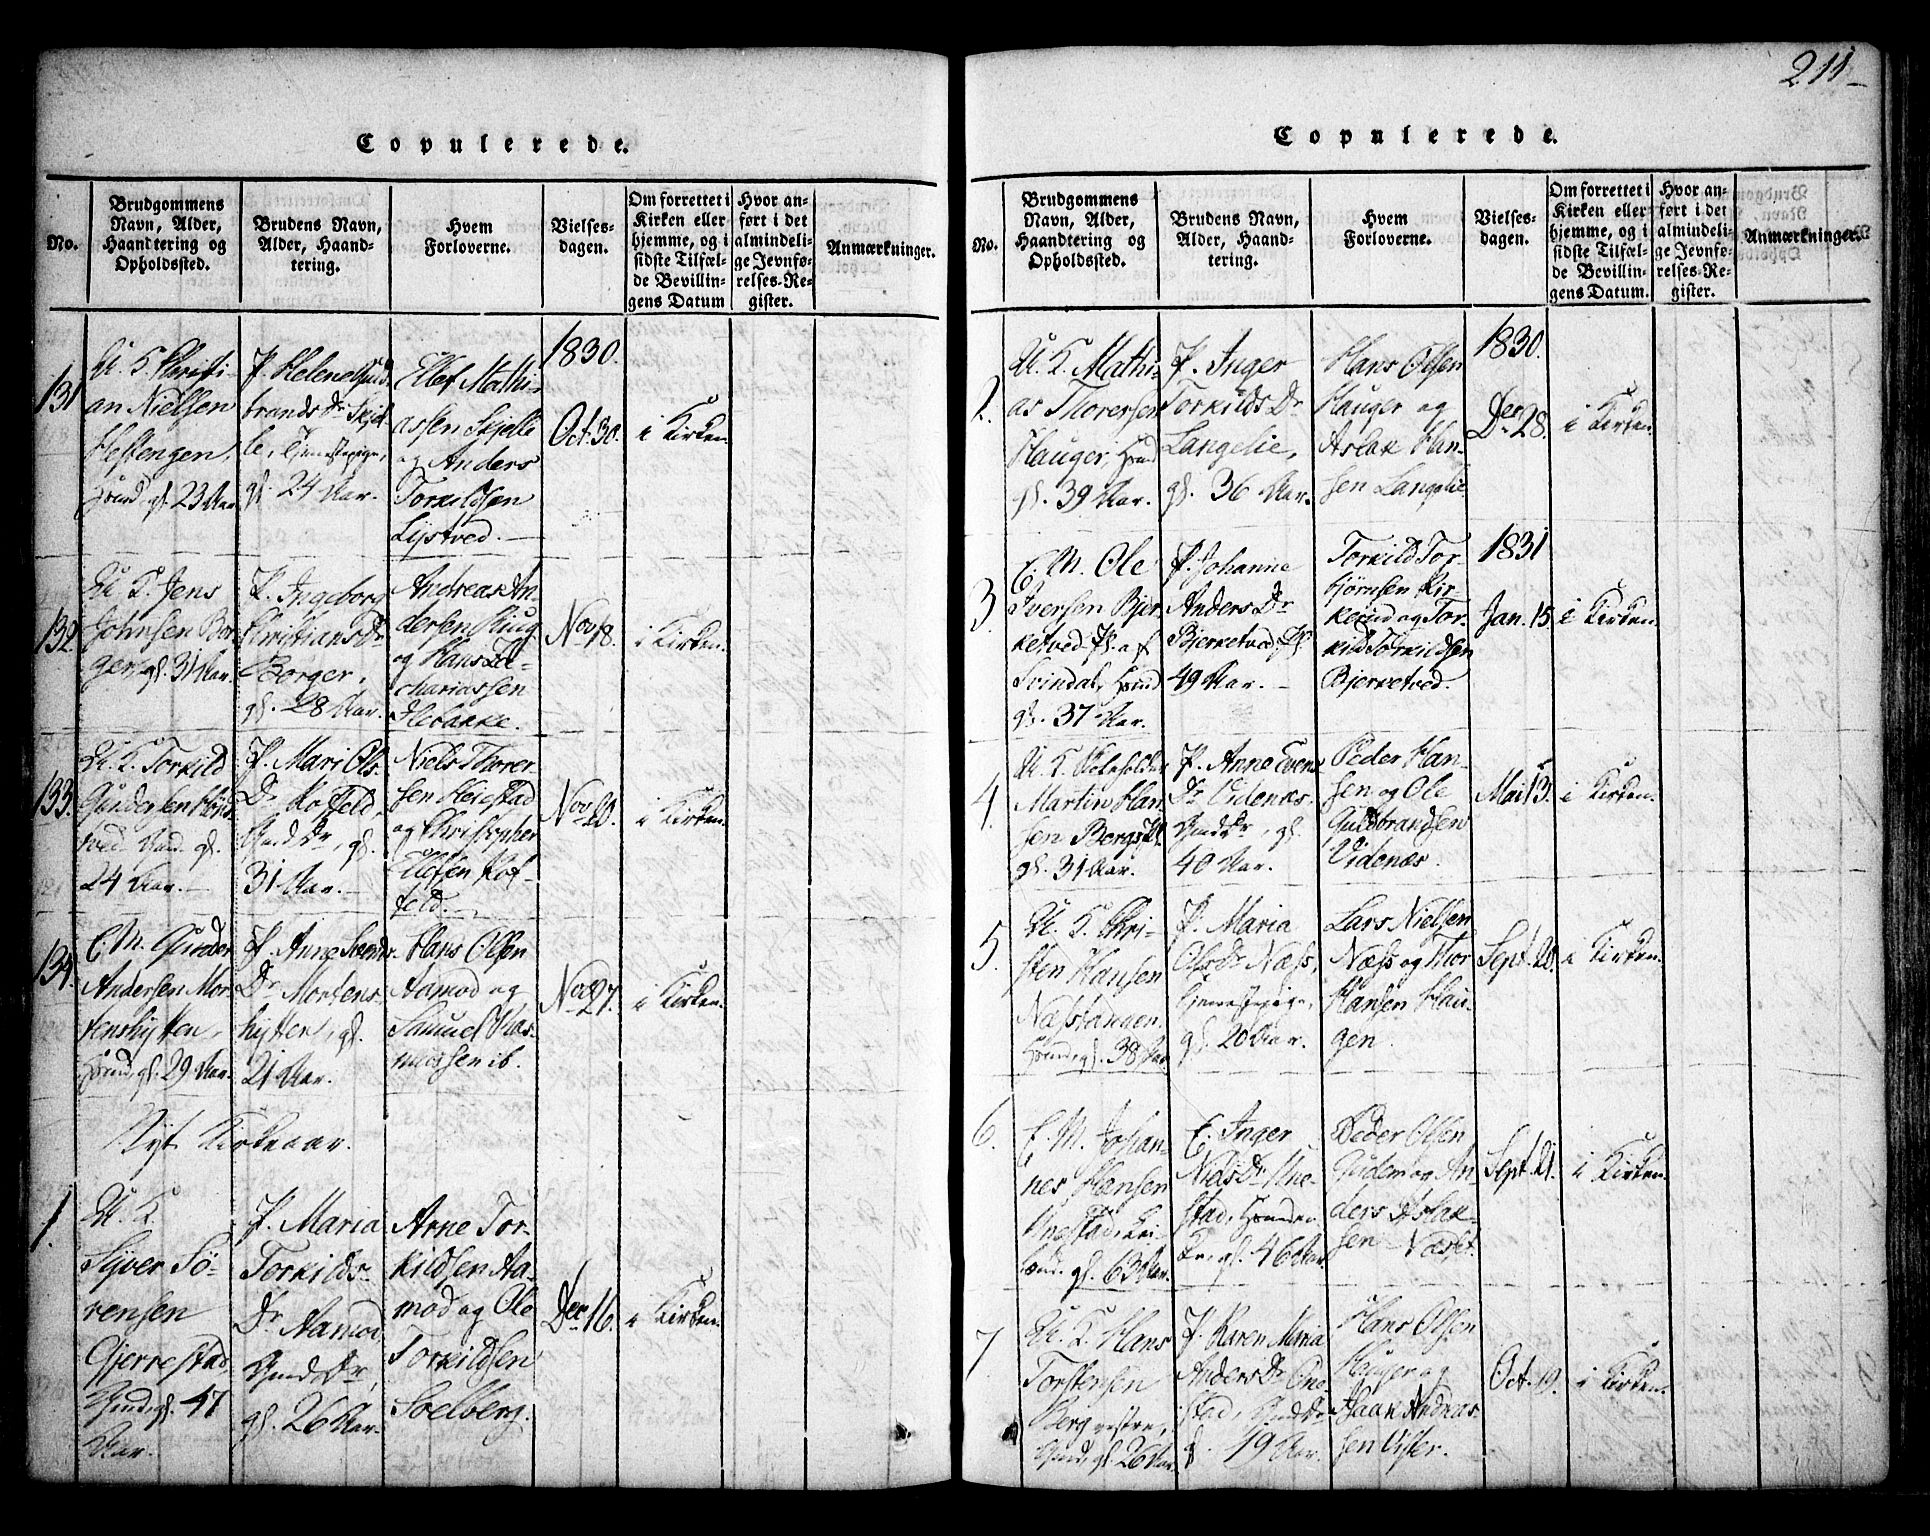 211
Copulerede.
No.
Brudgommens Navn, Alder, Haandtering og Opholdssted.
Brudens Navn, Alder, Haandtering.
Hvem Forloverne.
Vielsesdagen.
Om forrettet i Kirken eller hjemme, og i sidste Tilfælde Bevillingens Datum
Hvor anført i det almindelige Jevnførelses-Register.
Anmærkninger.
131
U. K. Christi-
an Nielsen
Hestengen,
gl. 23 Aar
P. Helene Guld-
brands Dr Skjel-
le, Tjenestepige,
gl. 24 Aar.
Ellef Mathi-
assen Skjelle
og Anders
Torkildsen
Lystved.
1830.
Oct. 30.
i Kirken.
132.
U. K. Jens
Johnsen Bor-
ger, gl. 31 Aar.
P. Ingeborg
Christians Dr
Borger,
gl. 28 Aar.
Andreas An-
dersen Krug
og Hans Za-
chariassen
Slebakke.
Nov. 18.
i Kirken.
133.
U. K. Torkild
Gundersen
gl.
24 Aar.
P. Mari Ols
Dr Kosfeld,
Gaard Dr, gl.
31 Aar.
Niels Thorer-
sen Heiestad
og Christopher
Ellefsen Kos-
feld.
Nov. 20.
i Kirken.
134.
E. M. Gunder
Andersen Mor-
tenshytten,
gl. 29 Aar.
P. Anne Svends
Dr Mortens
hytten, gl.
21 Aar.
Hans Olsen
Aamod og
Samuel Ras-
mussen ib.
Nov. 27.
i Kirken.
Nyt Kirkeaar.
1.
U. K.
Syver Sö-
rensen
Gjerrestad
gl. 47
Aar.
P. Maria
Torkilds
Dr Aamod
gl. 26 Aar.
Arne Tor-
kildsen Aa-
mod og Ole
Torkildsen
Solberg.
Dec. 16.
i Kirken.
Copulerede.
No.
Brudgommens Navn, Alder, Haandtering og Opholdssted.
Brudens Navn, Alder, Haandtering.
Hvem Forloverne.
Vielsesdagen.
Om forrettet i Kirken eller hjemme, og i sidste Tilfælde Bevillingens Datum.
Hvor anført i det almindelige Jevnførelses-Register.
Anmærkninger.
2.
U. K. Mathi-
as Thoresen
Hauger,
gl. 39 Aar.
P. Inger
Torkilds Dr
Langelie,
gl. 36 Aar.
Hans Olsen
Hauger og
Aslak Han-
sen Langelie
1830.
Decr 28.
i Kirken.
3
E. M. Ole
Iversen Bjer-
ketved Pl. af
Svindal,
gl. 37 Aar.
P. Johanne
Anders Dr
Bjerketved, gl.
49 Aar.
Torkild Tor-
bjørnsen Kir-
kerud og Tor-
kild Torkildsen
Bjerketved.
1831
Jan. 15
i Kirken.
4.
U. K.
Martin Han-
sen
gl. 31 Aar.
P. Anne Evens
Dr Videnæs
gl.
40 Aar.
Peder Han-
sen og Ole
Guldbrandsen
Videnæs.
Mai 13.
i Kirken.
5.
U. K. Chri-
sten Hansen
Næstangen
gl. 38 Aar
P. Maria
Ols Dr Næss,
Tjenestepige,
gl. 20 Aar.
Lars Nielsen
Næss og Thor
Hansen Hau-
gen.
Sept. 20.
i Kirken.
6.
E. M. Johan-
nes Hansen
gl. 63 Aar.
E. Inger
Niels Dr
gl. 46 Aar.
Peder Olsen
Gudem og An-
ders Aslak-
sen Næset.
Sept. 21.
i Kirken.
7
U. K. Hans
Torstensen
Berg vestre,
gl. 26 Aar.
P. Karen Maria
Anders Dr One-
stad,
gl. 19 Aar.
Hans Olsen
Hauger og
Haak Andreas-
sen Vister.
Oct. 19.
i Kirken.